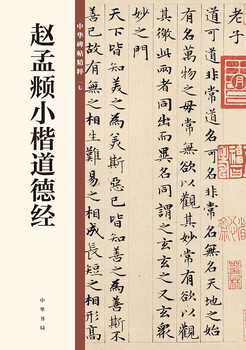 赵孟𫖯小楷道德经
中华碑帖精粹
中华书局
老子
道可道非常道名可名非常名無名天地之始
有名萬物之母常無欲以觀其妙常有欲以觀
其徼此兩者同出而異名同謂之玄玄之又玄衆
妙之門
天下皆知美之為美斯惡已皆知善之為善斯不
善已故有無之相生難易之相成長短之相形